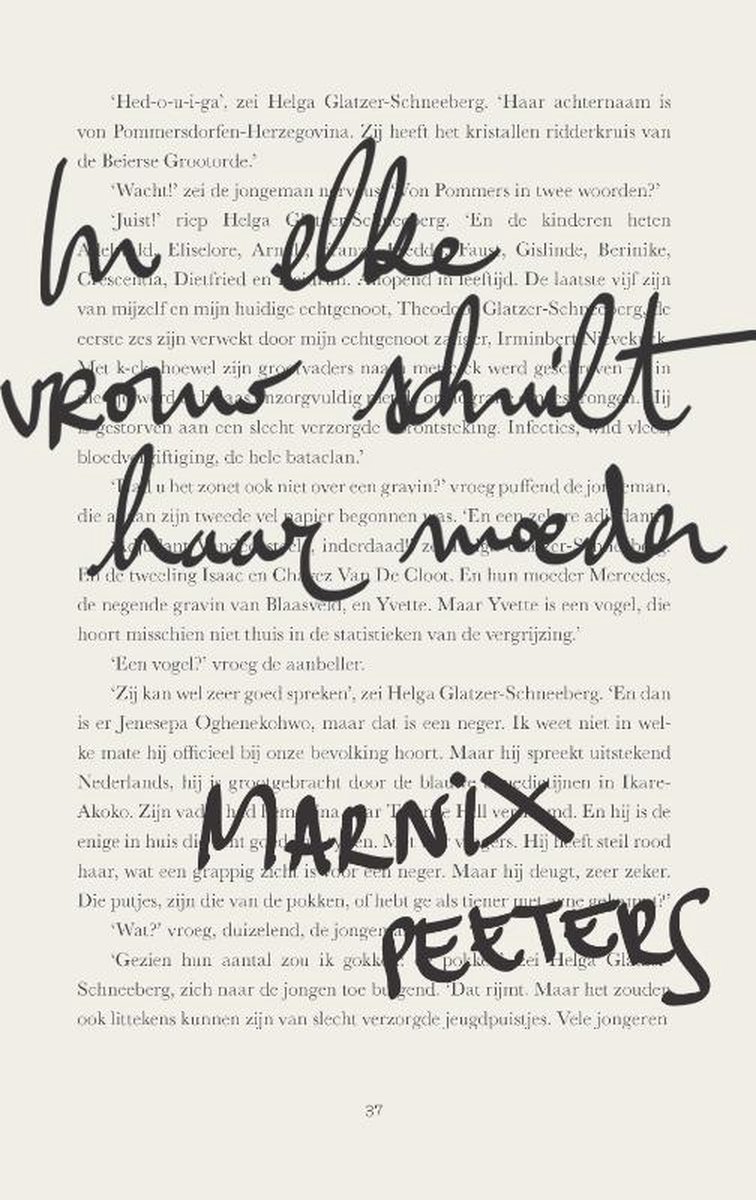 'Hed-o-u-i-ga', zei Helga Glatzer-Schneeberg. 'Haar achternaam is
von Pommersdorfen-Herzegovina. Zij heeft het kristallen ridderkruis van
de Beierse Grootorde.'
'Wacht!' zei de jongeman nerveus. 'Von Pommers in twee woorden?'
In elke
'Juist!' riep Helga Glatzer-Schneeberg. 'En de kinderen heten
Eliselore, Faust, Gislinde, Berinike,
Crescentia, Dietfried en Aflopend in leeftijd. De laatste vijf zijn
van mijzelf en mijn huidige echtgenoot, Theodoor Glatzer-Schneeberg, de
eerste zes zijn verwekt door mijn echtgenoot zaliger, Irminbert Nievekuck.
vrouw schuilt
Met k-ck, hoewel zijn grootvaders naam met werd geschreven in
onzorgvuldig Hij
is gestorven aan een slecht verzorgde Infecties, wild vlees,
bloedvergiftiging, de hele bataclan.'
haar moeder
'Had u het zonet ook niet over een gravin?' vroeg puffend de jongeman,
die aan zijn tweede vel papier begonnen was. 'En een zekere adjudant
inderdaad!' zei Helga Glatzer-Schneeberg.
En de tweeling Isaac en Chavez Van De Cloot. En hun moeder Mercedes,
de negende gravin van Blaasveld, en Yvette. Maar Yvette is een vogel, die
hoort misschien niet thuis in de statistieken van de vergrijzing.'
'Een vogel?' vroeg de aanbeller.
'Zij kan wel zeer goed spreken', zei Helga Glatzer-Schneeberg. 'En dan
is er Jenesepa Oghenekohwo, maar dat is een neger. Ik weet niet in wel-
ke mate hij officieel bij onze bevolking hoort. Maar hij spreekt uitstekend
Nederlands, hij is grootgebracht door de blauwe benedictijnen in Ikare-
Akoko. Zijn vader had hem naar Hill vernoemd. En hij is de
MARNIX
enige in huis die kan Met vingers. Hij heeft steil rood
haar, wat een grappig zicht is voor een neger. Maar hij deugt, zeer zeker.
Die putjes, zijn die van de pokken, of hebt ge als tiener met acne gekampt?'
PEETERS
'Wat?' vroeg, duizelend, de jongeman.
'Gezien hun aantal zou ik gokken: de pokken', zei Helga Glatzer-
Schneeberg, zich naar de jongen toe buigend. 'Dat rijmt. Maar het zouden
ook littekens kunnen zijn van slecht verzorgde jeugdpuistjes. Vele jongeren
37